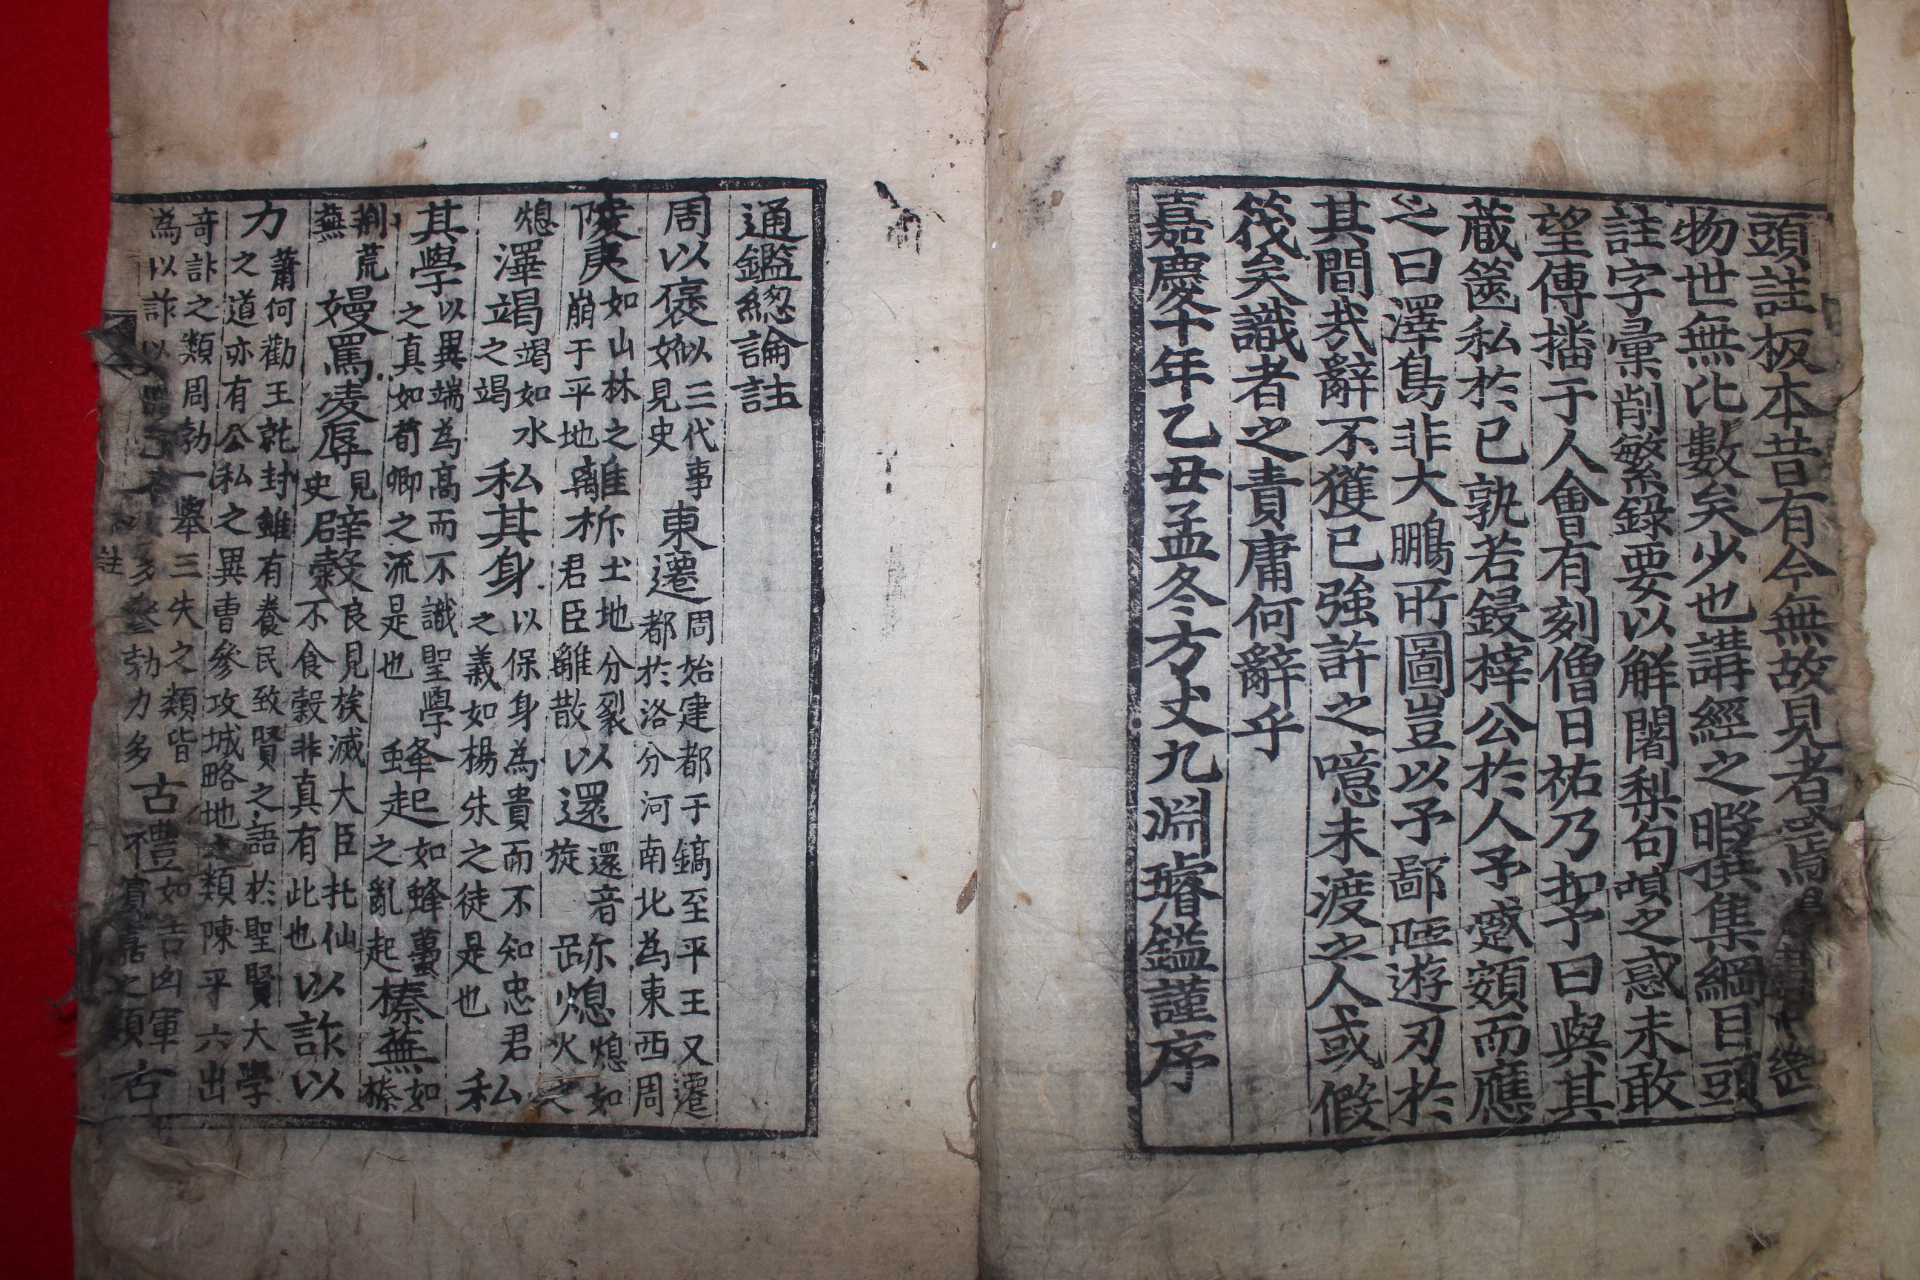 頭註板本昔有今無故見者
物世無比數矣少也講經之暇撰集綱目頭
註字彙削繁錄要以解闍梨句㖽之惑未敢
望傳播于人會有刻僧日祐乃扣予曰與其
蔵篋私於已孰若鋟梓公於人予蹙頞而應
之曰澤鳥非大鵬所圖豈以予鄙陋遊刃於
其間㢤辭不獲已強許之噫未渡之人或假
筏矣識者之責庸何辭乎
嘉慶十年乙丑孟冬方丈九淵璿鑑謹序
通鑑緫論註
周以褒姒似三代事
如見史
東遷周始建都于鎬至平王又遷
都於洛分河南北為東西周
陵夷如山林之
崩于平地
離析土地分裂
君臣離散
以還還音
旋
熄熄如
火之
熄
澤竭竭如水
之竭
私其身以保身為貴而不知忠君
之義如楊朱之徒是也
私
其學以異端為高而不識聖學
之真如荀卿之流是也
蜂起如蜂蠆
之亂起
榛蕪如
榛
荆荒
蕪
嫚罵凌辱見
史
辟穀良見族滅大臣托仙
不食穀非真有此也
以詐以
力蕭何勸王就封雖有養民致賢之語於聖賢大學
之道亦有公私之異曹參攻城略地之類陳平六出
奇計之類周勃一舉三失之類皆
為以詐以
勃力多
古禮如吉凶軍
賓嘉之類
古